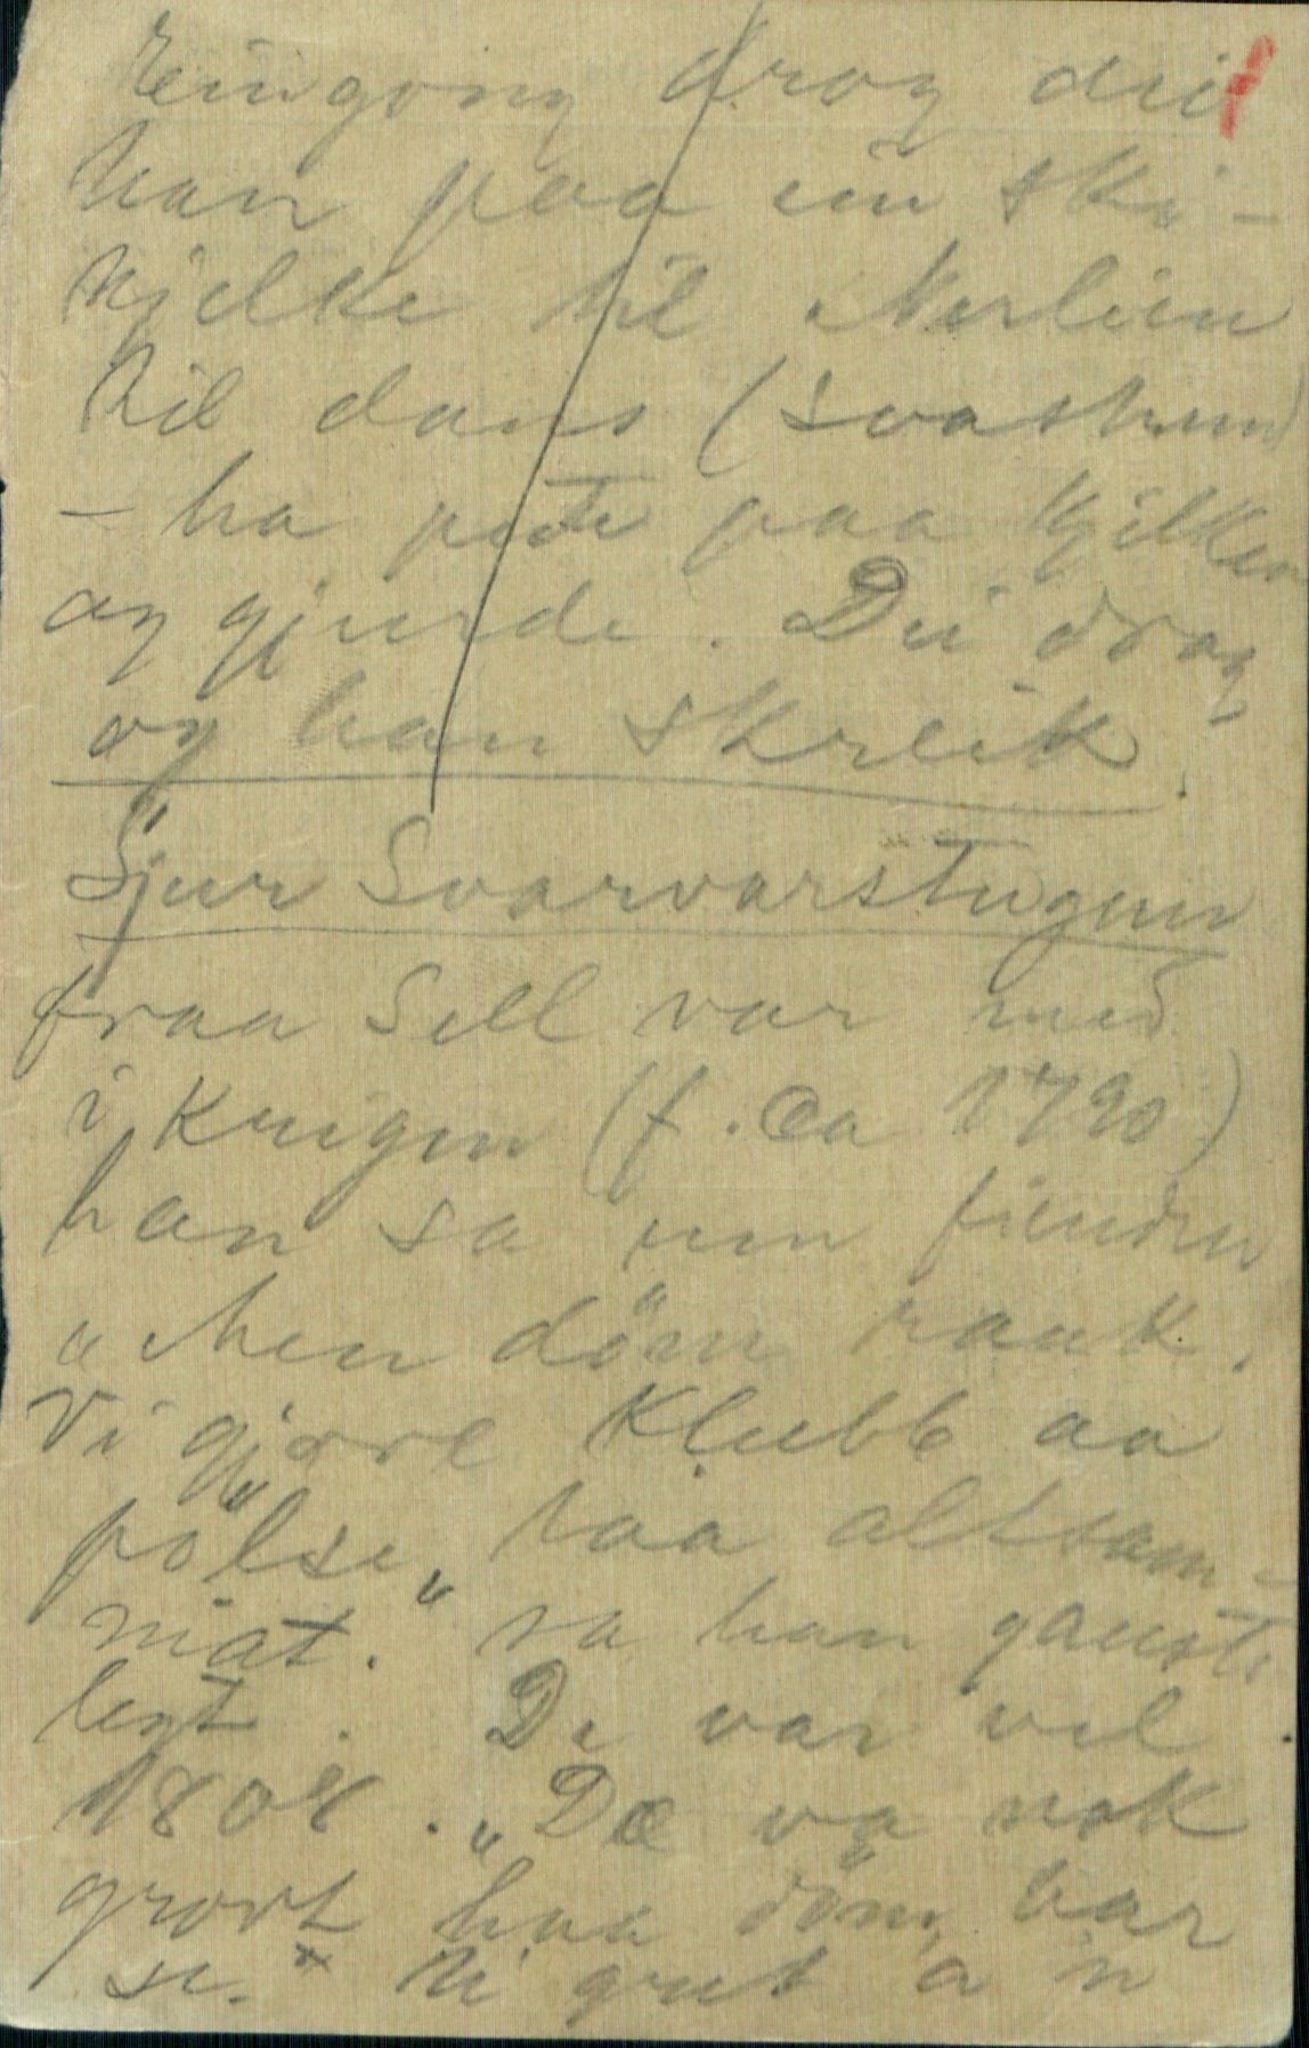 Eingong drog dei
han paa ein ski-
kjelke til Nerlien
til dans
- ha pute paa kjelken
og gjurde. Dei drog
og han skreik.
Sjur Svarvarstugun
fraa Sell var med
i Krigen (f. Ca 1790)
han sa um fienden
„Men döm rauk.
Vi gjorde Klubb aa
pölse„ taa altsam-
mat." sa han
legt. De var vel
1808. „Dæ va nok
grovt haa döm bar
se." Ti gret a n